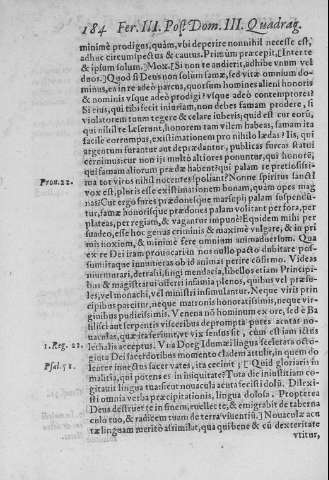 184 Fer. III. Post Dom. III. Quadrag.
minimè prodigus, quàm, vbi deperire nonnihil necesse est,
adhoc circumspectus & cautus. Primùm præcepit, [Inter te
& ipsum solum.] Mox [Si non te audierit, adhibe vnum vel
duos.] Quod si Deus non solùm famæ, sed vitæ omnium do-
minus, ea in re adeò parcus, quorsum homines alieni honoris
& nominis vsque adeò prodigi? vsque adeò contemptores?
Si eius, qui tibi fecit iniuriam, non debes famam prodere, si
violatorem tuum tegere & celare iuberis; quid est cur eorũ,
qui nihil te læserunt, honorem tam vilem habeas, famam ita
facilè corrumpas, existimationem pro nihilo lædas? Iis, qui
argentum furantur aut deprædantur, publicas furcas statui
cernimus: cur non iis multò altiores ponuntur, qui honorẽ;
qui famam aliorum prædæ habent? qui palam te pretiosissi-
Prou. 22. ma tot viros nihil nocentes spoliant? Nonne spiritus sancti
vox est, pluris esse existimationem bonam, quàm opes mag
nas? Cur ergo fures prædonesque marsupii palam suspendũ-
tur, famæ honorisque prædones palam volitant per fora, per
plateas, per regiam, & vagantur impunè? Equidem mihi per
suadeo, esse hoc genus criminis & maximè vulgare, & in pri
mis noxium, & minimè ferè omnium animaduersum. Qua
ex re Dei iram prouocari in nos nullo pacto dubitare pos-
sum: itaque innumeras ob id animas perire cõfirmo. Videas
murmurari, detrahi, fingi mendacia, libellos etiam Principi-
bus & magistratui offerri infamia plenos, quibus vel priscu
les, vel monachi, vel ministri insimulantur. Neque viris prin
cipibus parcitur, neque matronis honoratissimis, neque vir-
ginibus pudicissimis. Venena nõ hominum ex ore, sed è Ba
silisci aut serpentis visceribus deprompta potes acutas no-
uaculas, quæ ita feriunt, vt vix sentias ist, cùm est iam ictus
1. Reg. 22. lethalis acceptus. Vna Doeg Idumæi lingua scelerata octo-
ginta Dei sacerdotibus momento cladem attulit, in quem do
Psal. 51. lenter inuectus sacer vates, ita cecinit; [Quid gloriaris in
malitia, qui potens es in iniquitate? Tota die iniustitiam co-
gitauit lingua tua: sicut nouacula acuta fecisti dolũ. Dilexi-
sti omnia verba præcipitationis, lingua dolosa. Propterea
Deus destruet te in finem, euellet te, & emigrabit de taberna
culo tuo, & radicem tuam de terra viuentiũ.] Nouaculæ acu
tæ linguam meritò assimilat, qua quis bene & cũ dexteritate
vtitur,